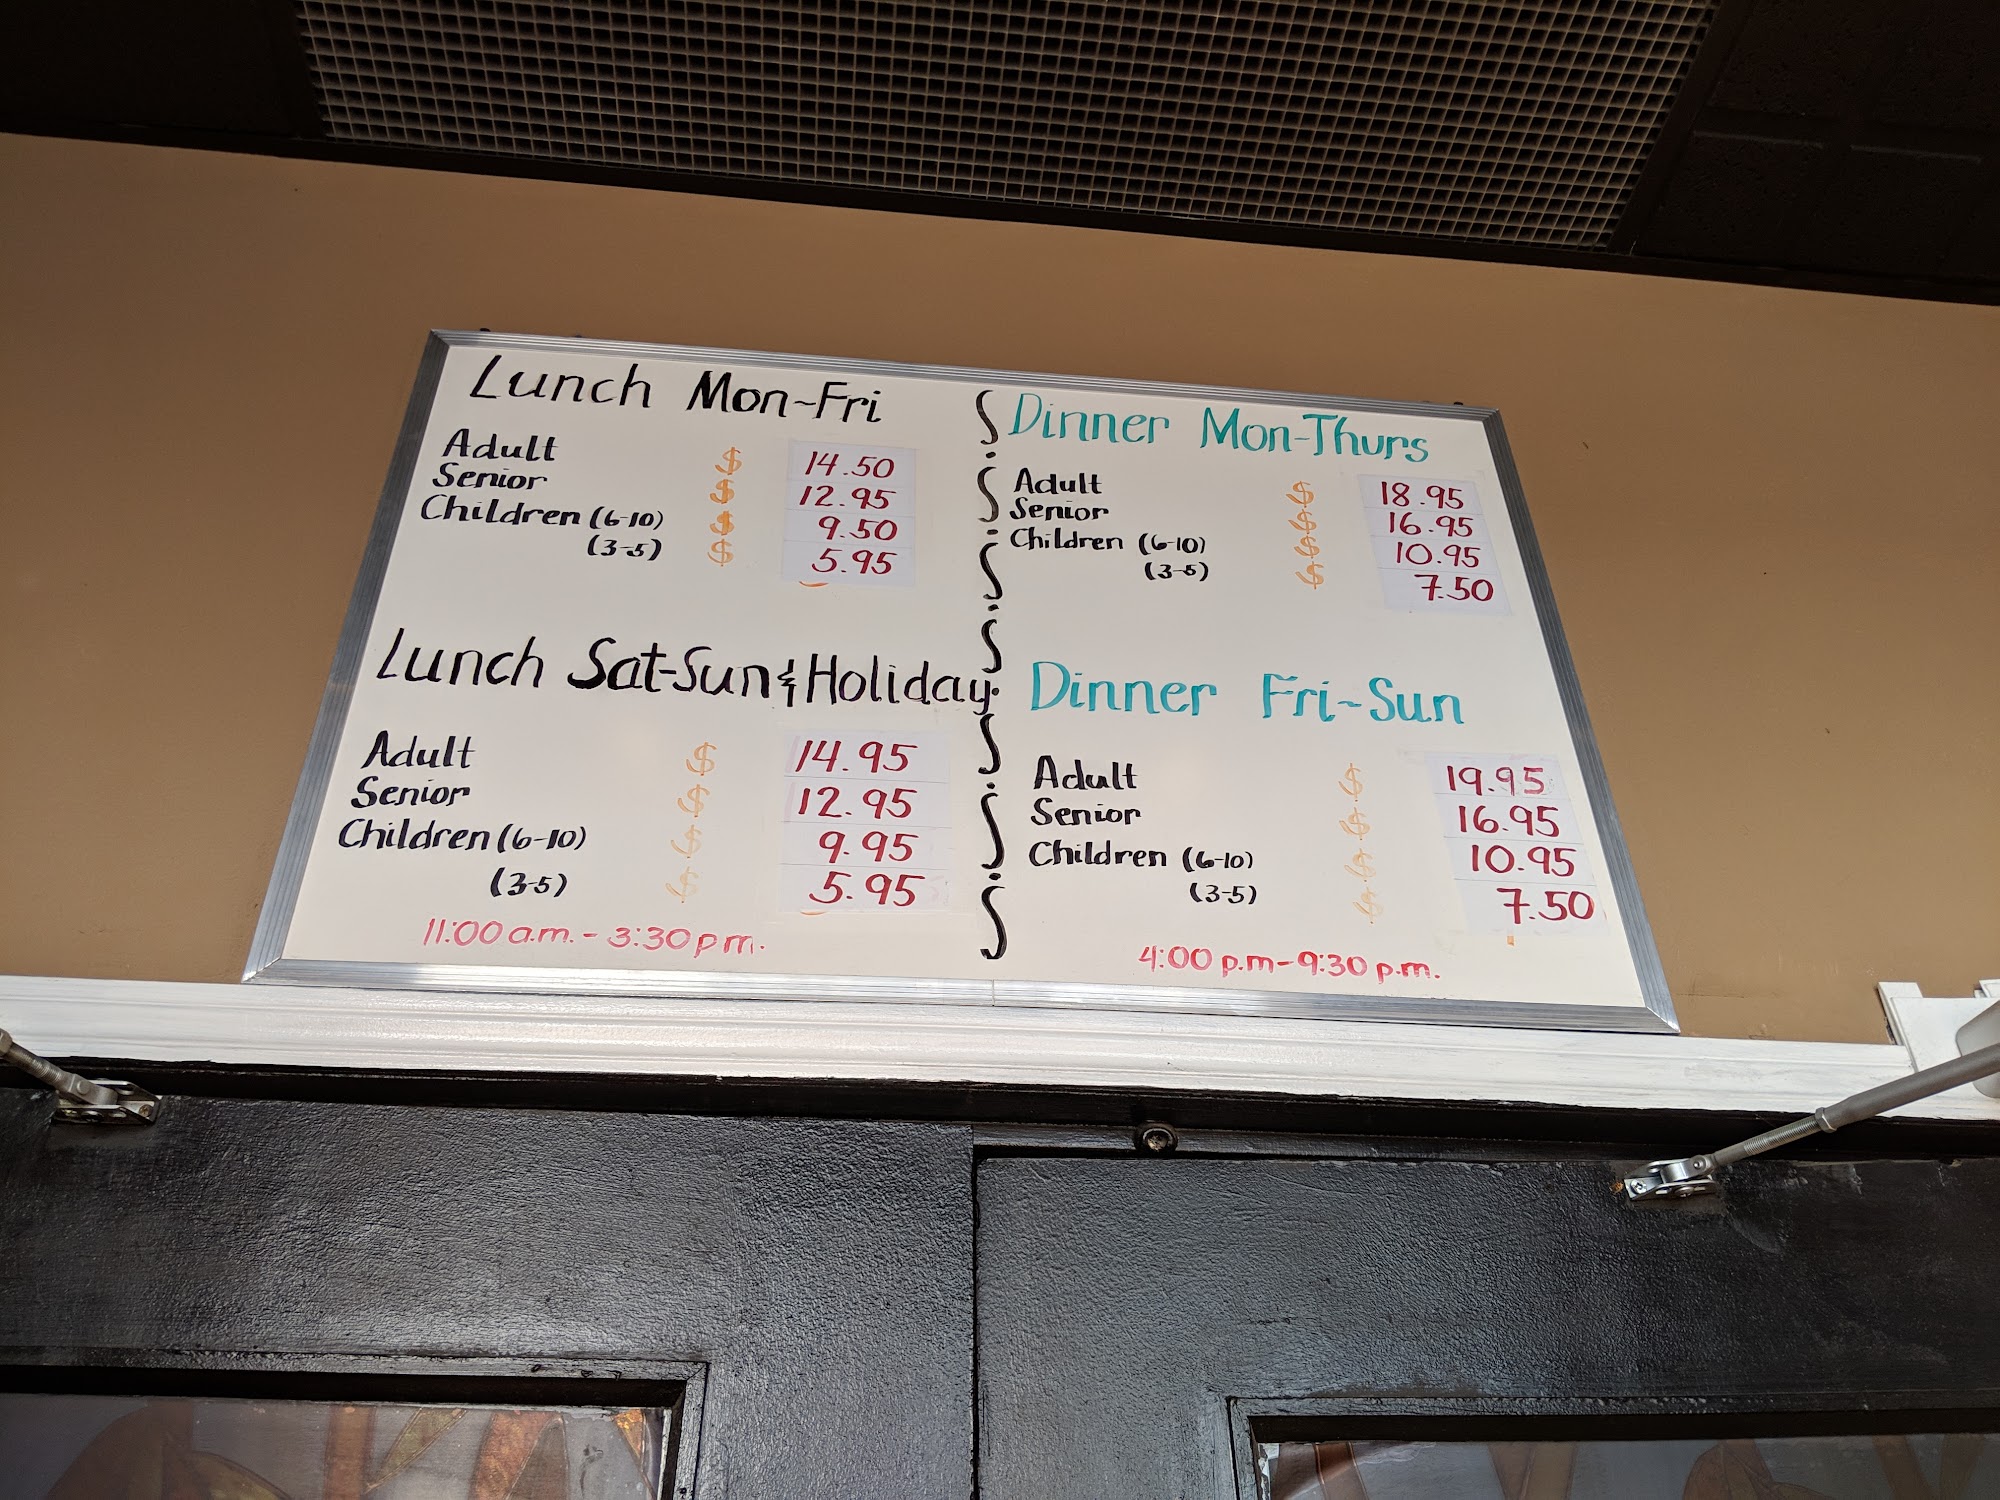 Lunch Mon-Fri
Adult $ 14.50
Senior $ 12.95
Children (6-10) $ 9.50
(3-5) $ 5.95
Lunch Sat-Sun & Holiday
Adult $ 14.95
Senior $ 12.95
Children (6-10) $ 9.95
(3-5) $ 5.95
11:00 a.m. - 3:30 p.m.
Dinner Mon-Thurs
Adult $ 18.95
Senior $ 16.95
Children (6-10) $ 10.95
(3-5) $ 7.50
Dinner Fri-Sun
Adult $ 19.95
Senior $ 16.95
Children (6-10) $ 10.95
(3-5) $ 7.50
4:00 p.m - 9:30 p.m.